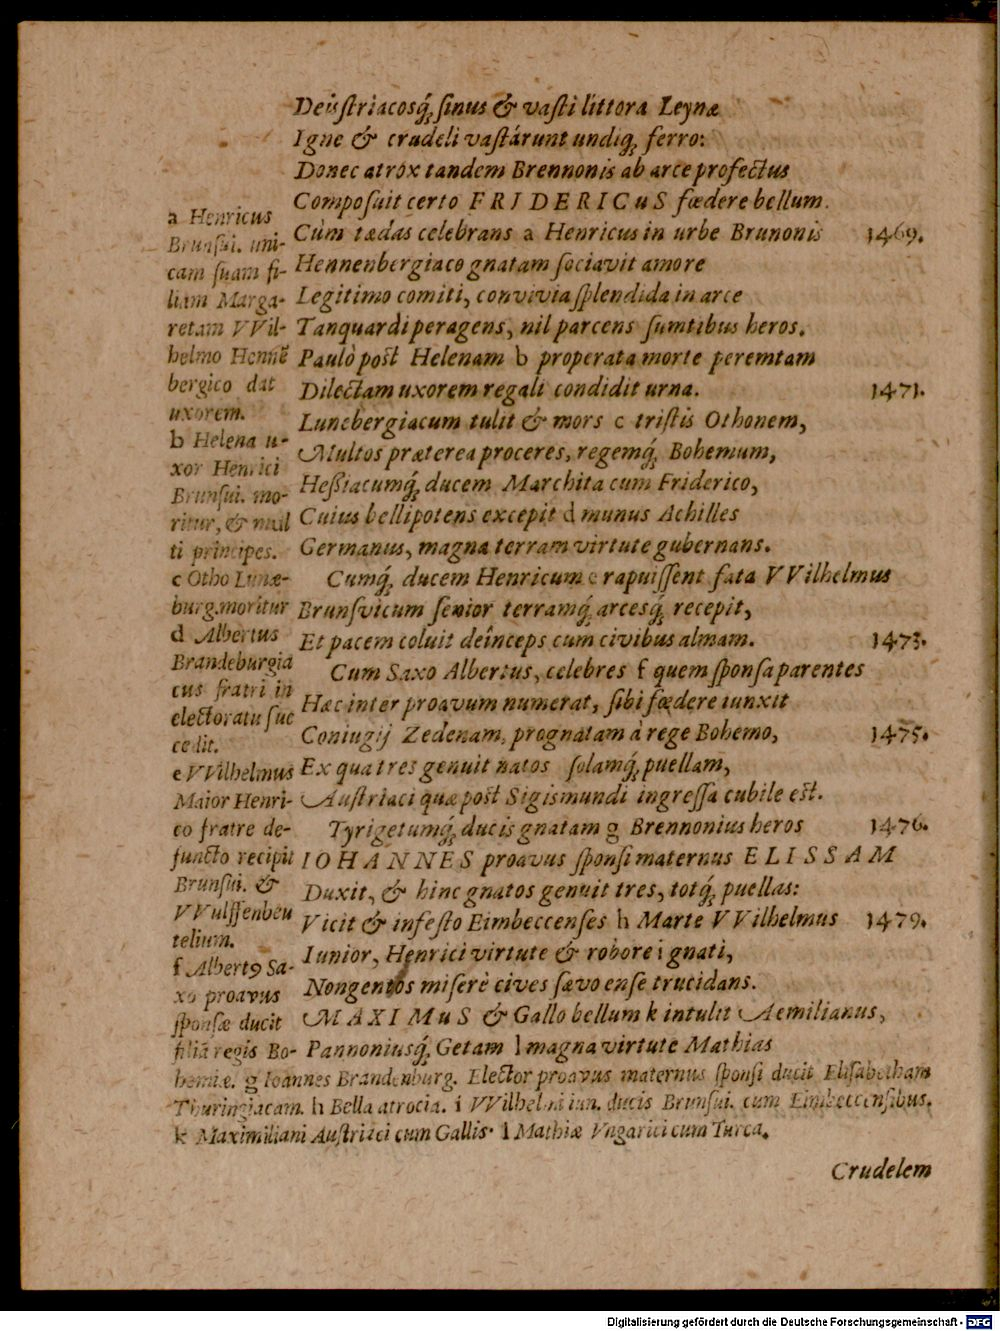 Deüstriacosq́; sinus & vasti littora Leynæ
Igne & crudeli vastárunt undiq; ferro:
Donec atrox tandem Brennonis ab arce profectus
Composuit certo FRIDERICuS fœdere bellum.
Cùm tædas celebrans a Henricus in urbe Brunonis 1469.
Hennenbergiaco gnatam sociavit amore
Legitimo comiti, convivia splendida in arce
Tanquardi peragens, nil parcens sumtibus heros.
Paulò pòst Helenam b properata morte peremtam
Dilectam uxorem regali condidit urna. 1471.
Lunebergiacum tulit & mors c tristis Othonem,
Multos præterea proceres, regemq́; Bohemum,
Heßiacumq́; ducem Marchita cum Friderico,
Cuius bellipotens excepit d munus Achilles
Germanus, magna terram virtute gubernans.
Cumq́; ducem Henricum e rapuissent fata VVilhelmus
Brunsvicum senior terramq́; arcesq́; recepit,
Et pacem coluit deînceps cum civibus almam. 1473.
Cum Saxo Albertus, celebres f quem sponsa parentes
Hac inter proavum numerat, sibi fœdere iunxit
Coniugij Zedenam, prognatam à rege Bohemo, 1475.
Ex qua tres genuit natos solamq́; puellam,
Austriaci quæ pòst Sigismundi ingressa cubile est.
Tyrigetumq́; ducis gnatam g Brennonius heros 1476.
IOHANNES proavus sponsi maternus ELISSAM
Duxit, & hinc gnatos genuit tres, totq́; puellas:
Vicit & infesto Eimbeccenses h Marte VVilhelmus 1479.
Iunior, Henrici virtute & robore i gnati,
Nongentos miserè cives sævo ense trucidans.
MAXIMuS & Gallo bellum k intulit Aemilianus,
Pannoniusq́; Getam l magna virtute Mathias
a Henricus
Brunsui. uni-
cam suam fi-
liam Marga-
retam VVil-
helmo Hennē
bergico dat
uxorem.
b Helena u-
xor Henrici
Brunsui. mo-
ritur, & mul
ti principes.
c Otho Lunæ-
burg. moritur
d Albertus
Brandeburgia
cus fratri in
electoratu suc
cedit.
e VVilhelmus
Maior Henri-
co fratre de-
functo recipit
Brunsui. &
VVulffenbeu
telium.
f Albertꝰ Sa-
xo proavus
sponsæ ducit
filiā regis Bo-
hemiæ. g Ioannes Brandenburg. Elector proavus maternus sponsi ducit Elisabetham
Thuringiacam. h Bella atrocia. i VVilhelmi iun. ducis Brunsui. cum Eimbeccensibus.
k Maximiliani Austriaci cum Gallis. l Mathiæ Vngarici cum Turca.
Crudelem
Digitalisierung gefördert durch die Deutsche Forschungsgemeinschaft - DFG